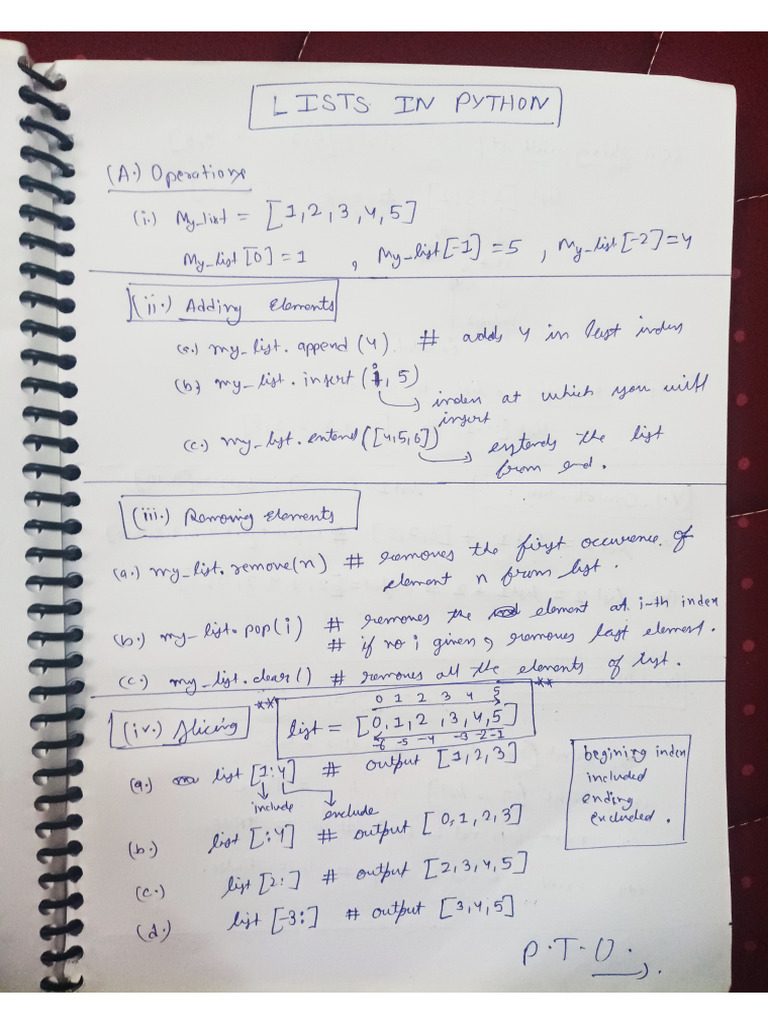 LISTS IN PYTHON
(A.) Operations
(i.) My_list = [1,2,3,4,5]
My_list[0] = 1 , My_list[-1] = 5 , My_list[-2] = 4
(ii.) Adding Elements
(a.) my_list.append(4) # adds 4 in last index
(b) my_list.insert(i, 5)
index at which you will
insert
(c.) my_list.extend([4,5,6])
extends the list
from end.
(iii.) Removing Elements
(a.) my_list.remove(n) # removes the first occurence of
element n from list.
(b.) my_list.pop(i) # removes the element at i-th index
# if no i given, removes last element.
(c.) my_list.clear() # removes all the elements of list.
(iv.) Slicing
** **
0 1 2 3 4 5
list = [0,1,2,3,4,5]
-6 -5 -4 -3 -2 -1
(a.) list[1:4] # output [1,2,3]
include exclude
begining index
included
ending
excluded.
(b.) list[:4] # output [0,1,2,3]
(c.) list[2:] # output [2,3,4,5]
(d.) list[-3:] # output [3,4,5]
P.T.O.